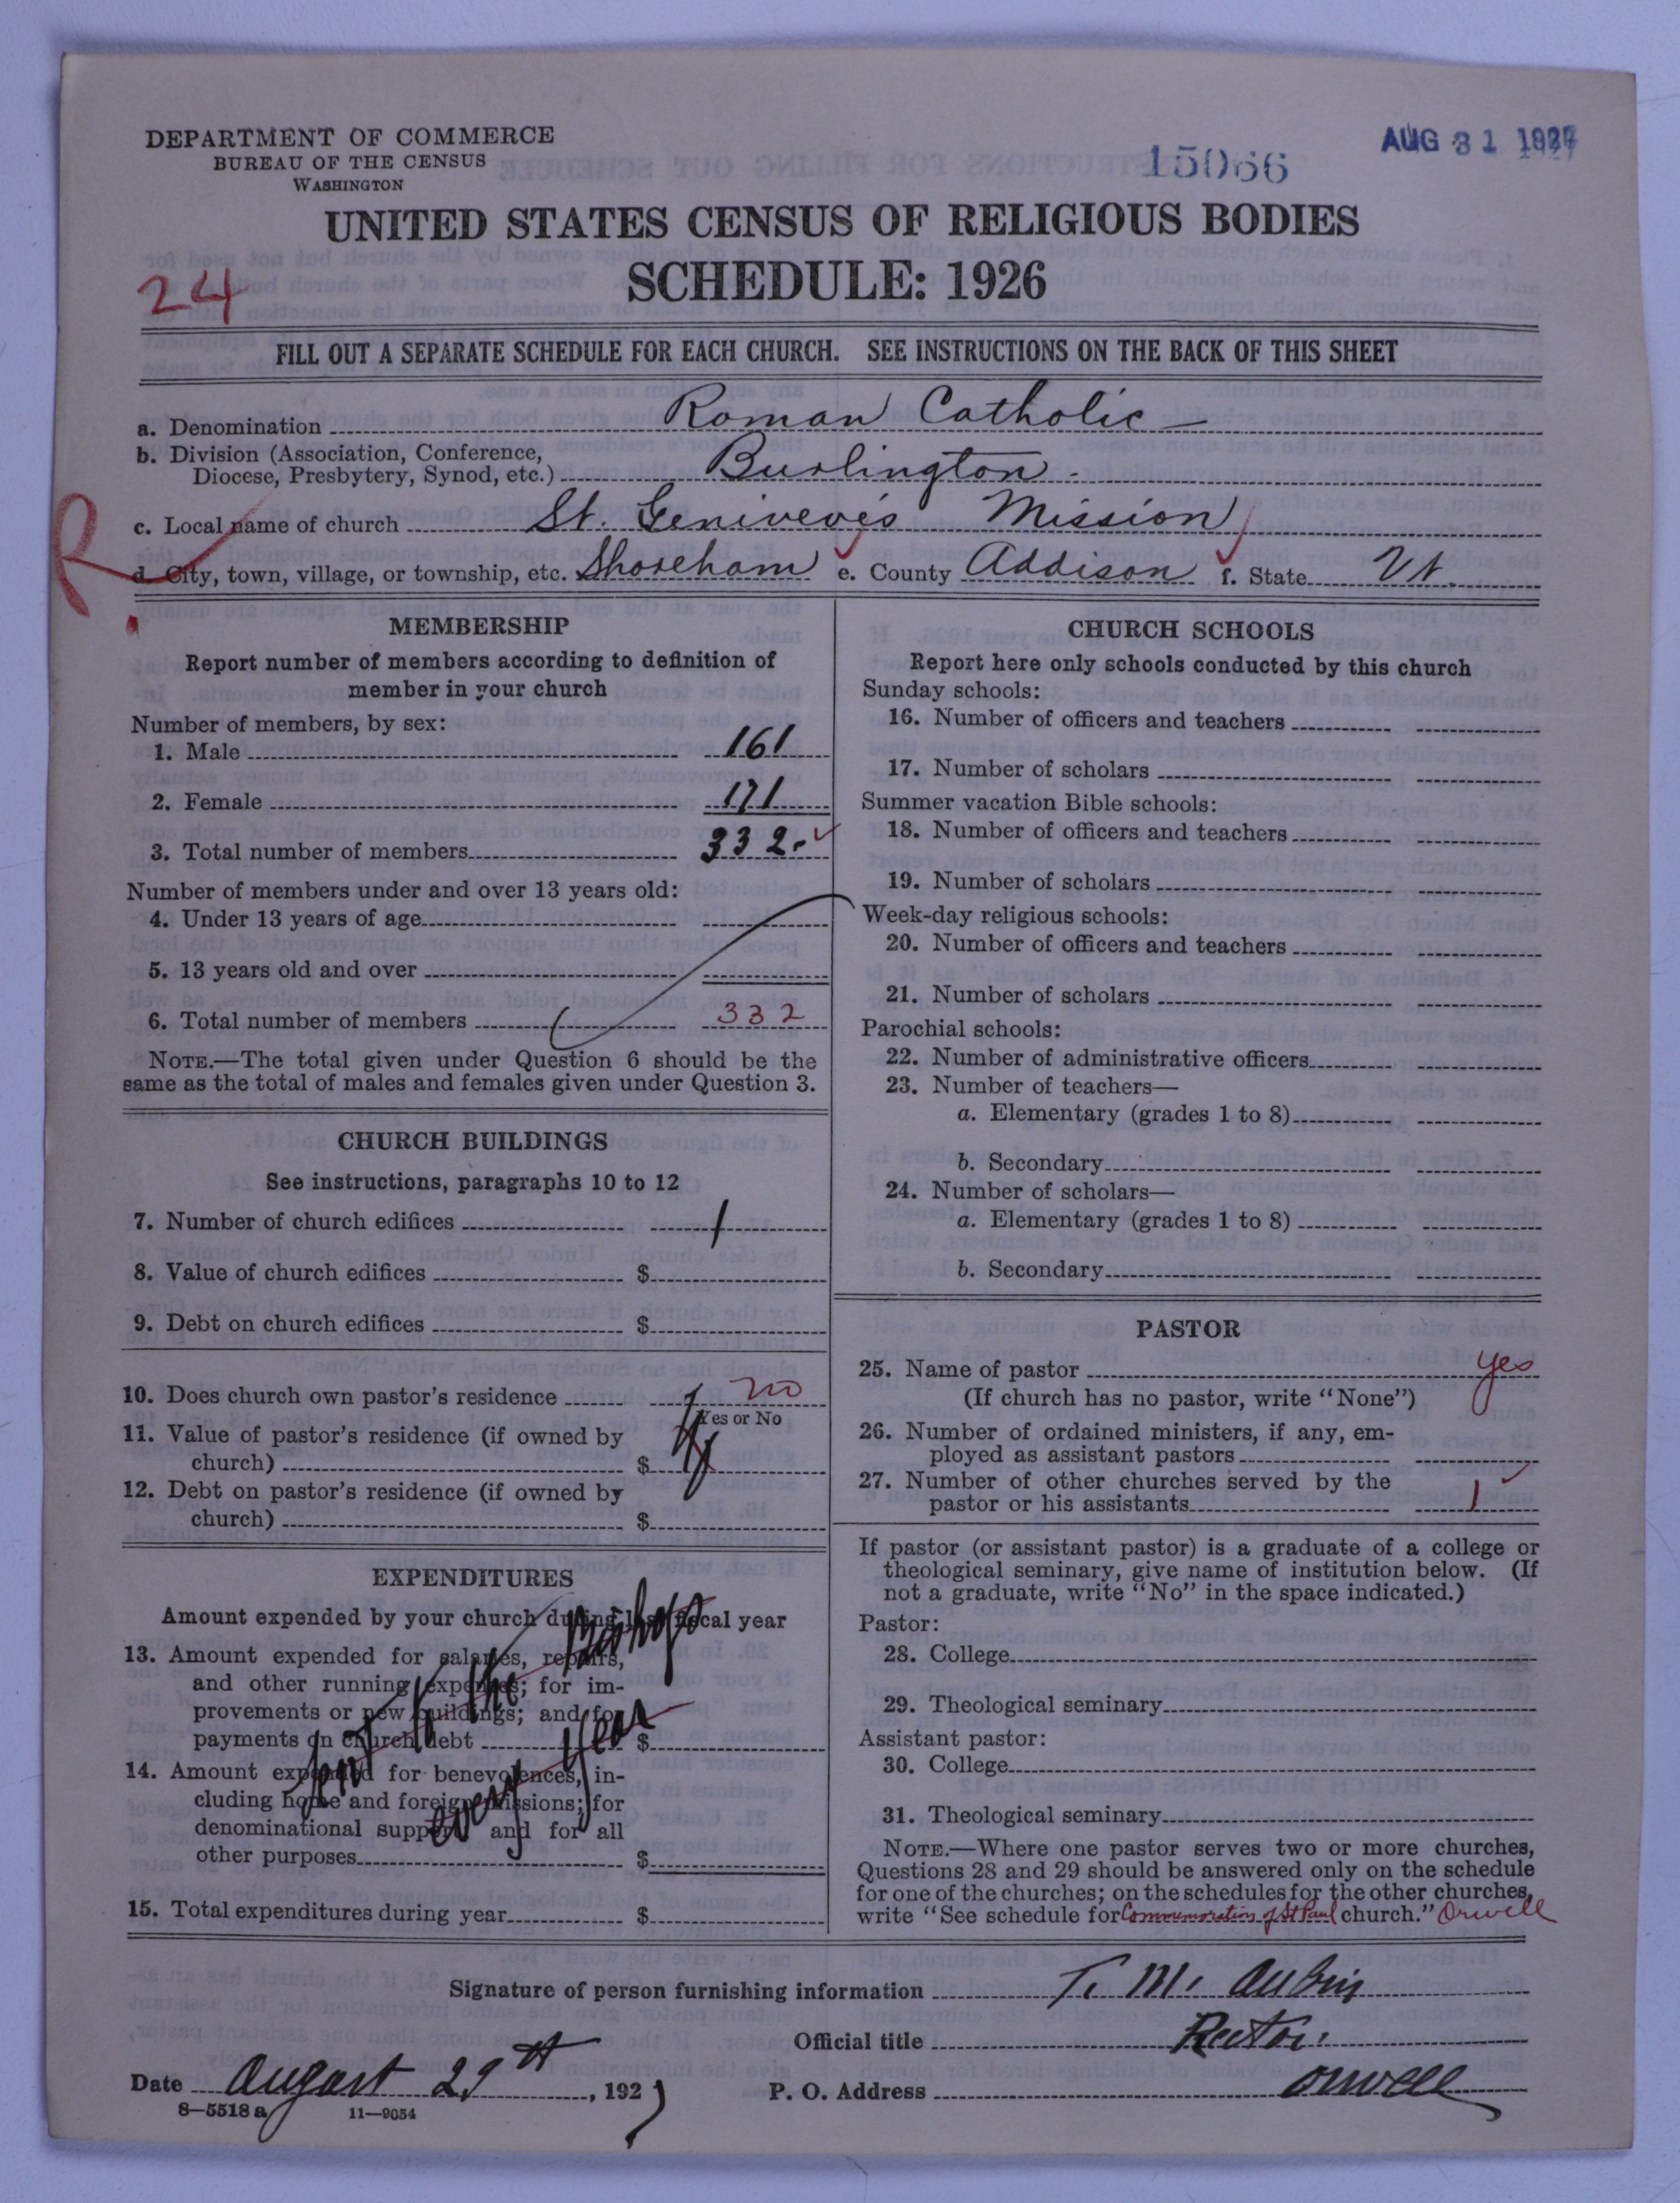 DEPARTMENT OF COMMERCE
BUREAU OF THE CENSUS
WASHINGTON
15066
AUG 31 1927
UNITED STATES CENSUS OF RELIGIOUS BODIES
SCHEDULE: 1926
24
FILL OUT A SEPARATE SCHEDULE FOR EACH CHURCH. SEE INSTRUCTIONS ON THE BACK OF THIS SHEET
a. Denomination Roman Catholic
b. Division (Association, Conference,
Diocese, Presbytery, Synod, etc.) Burlington
R.
c. Local name of church St. Geniveve's Mission
d. City, town, village, or township, etc. Shoreham e. County Addison f. State Vt.
MEMBERSHIP
Report number of members according to definition of
member in your church
Number of members, by sex:
1. Male 161
2. Female 171
3. Total number of members 332
Number of members under and over 13 years old:
4. Under 13 years of age
5. 13 years old and over
6. Total number of members 332
NOTE.—The total given under Question 6 should be the
same as the total of males and females given under Question 3.
CHURCH BUILDINGS
See instructions, paragraphs 10 to 12
7. Number of church edifices 1
8. Value of church edifices $
9. Debt on church edifices $
10. Does church own pastor's residence no
Yes or No
11. Value of pastor's residence (if owned by
church) $
12. Debt on pastor's residence (if owned by
church) $
EXPENDITURES
Amount expended by your church during last fiscal year
13. Amount expended for salaries, repairs,
and other running expenses; for im-
provements or new buildings; and for
payments on church debt $
14. Amount expended for benevolences, in-
cluding home and foreign missions; for
denominational support; and for all
other purposes $
sent to the Bishop
every year
15. Total expenditures during year $
CHURCH SCHOOLS
Report here only schools conducted by this church
Sunday schools:
16. Number of officers and teachers
17. Number of scholars
Summer vacation Bible schools:
18. Number of officers and teachers
19. Number of scholars
Week-day religious schools:
20. Number of officers and teachers
21. Number of scholars
Parochial schools:
22. Number of administrative officers
23. Number of teachers—
a. Elementary (grades 1 to 8)
b. Secondary
24. Number of scholars—
a. Elementary (grades 1 to 8)
b. Secondary
PASTOR
25. Name of pastor yes
(If church has no pastor, write "None")
26. Number of ordained ministers, if any, em-
ployed as assistant pastors
27. Number of other churches served by the
pastor or his assistants 1
If pastor (or assistant pastor) is a graduate of a college or
theological seminary, give name of institution below. (If
not a graduate, write "No" in the space indicated.)
Pastor:
28. College
29. Theological seminary
Assistant pastor:
30. College
31. Theological seminary
NOTE.—Where one pastor serves two or more churches,
Questions 28 and 29 should be answered only on the schedule
for one of the churches; on the schedules for the other churches,
write "See schedule for Commemoration of St Paul church." Orwell
Signature of person furnishing information T. M. Aubin
Official title Rector
Date August 29th, 1927 P. O. Address Orwell
8—5518 a 11—9054